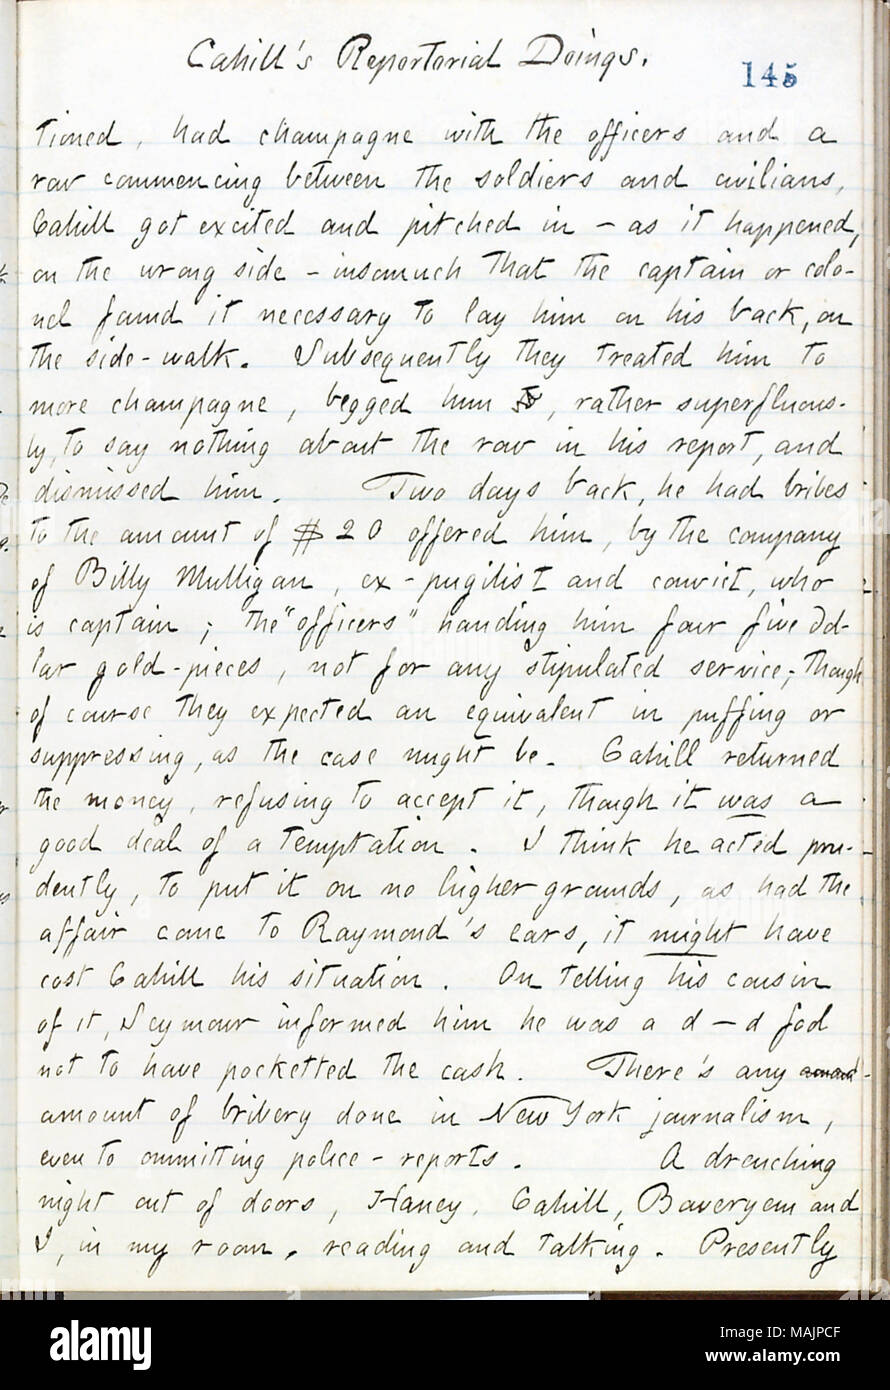 Cahill's Reportorial Doings.
145
tioned, had champagne with the officers and a
row commencing between the soldiers and civilians,
Cahill got excited and pitched in – as it happened,
on the wrong side – insomuch that the captain or colo-
nel found it necessary to lay him on his back, on
the side-walk. Subsequently they treated him to
more champagne, begged him to, rather superfluous-
ly, to say nothing about the row in his report, and
dismissed him. Two days back, he had bribes
to the amount of $20 offered him, by the company
of Billy Mulligan, ex-pugilist and convict, who
is captain; the "officers" handing him four five dol-
lar gold-pieces, not for any stipulated service; though
of course they expected an equivalent in puffing or
suppressing, as the case might be. Cahill returned
the money, refusing to accept it, though it was a
good deal of a temptation. I think he acted pru-
dently, to put it on no higher grounds, as had the
affair come to Raymond's ears, it might have
cost Cahill his situation. On telling his cousin
of it, Seymour informed him he was a d—d fool
not to have pocketted the cash. There's any
amount of bribery done in New York journalism,
even to ommitting police-reports. A drenching
night out of doors, Haney, Cahill, Boweryem and
I, in my room, reading and talking. Presently
alamy
Image ID: MAJPCF
www.alamy.com